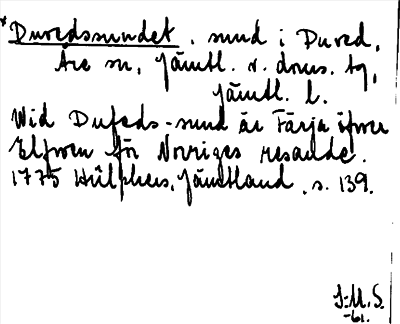 *Duvedssundet, sund i Duved,
Åre sn, Jämtl. v. doms. tg,
Jämtl. l.
Wid Dufeds-sund är Färja öfwer
Elfwen för Norriges resande.
1775 Hülphers, Jämtland, s. 139.
J.M.S.
-61.